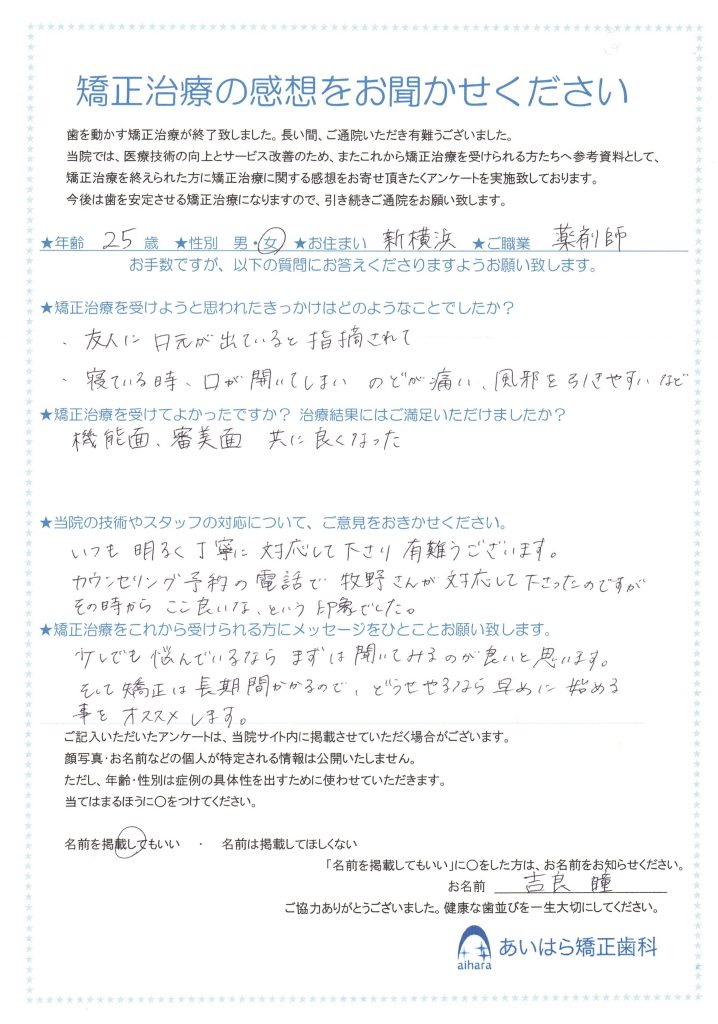 矯正治療の感想をお聞かせください
歯を動かす矯正治療が終了致しました。長い間、ご通院いただき有難うございました。
当院では、医療技術の向上とサービス改善のため、またこれから矯正治療を受けられる方たちへ参考資料として、
矯正治療を終えられた方に矯正治療に関する感想をお寄せ頂きたくアンケートを実施致しております。
今後は歯を安定させる矯正治療になりますので、引き続きご通院をお願い致します。
★年齢 25 歳 ★性別 男・女 ★お住まい 新横浜 ★ご職業 薬剤師
お手数ですが、以下の質問にお答えくださりますようお願い致します。
★矯正治療を受けようと思われたきっかけはどのようなことでしたか?
・友人に 口元が出ていると 指摘されて
・寝ている時、口が開いてしまい のどが痛い、風邪を引きやすい など
★矯正治療を受けてよかったですか? 治療結果にはご満足いただけましたか?
機能面、審美面 共に良くなった
★当院の技術やスタッフの対応について、ご意見をおきかせください。
いつも 明るく丁寧に 対応して下さり 有難うございます。
カウンセリング予約の電話で 牧野さんが 対応して下さったのですが
その時から ここ良いな、という印象でした。
★矯正治療をこれから受けられる方にメッセージをひとことお願い致します。
少しでも 悩んでいるなら まずは聞いてみるのが良いと思います。
そして矯正は長期間かかるので、どうせやるなら 早めに 始める
事を オススメします。
ご記入いただいたアンケートは、当院サイト内に掲載させていただく場合がございます。
顔写真・お名前などの個人が特定される情報は公開いたしません。
ただし、年齢・性別は症例の具体性を出すために使わせていただきます。
当てはまるほうに○をつけてください。
名前を掲載してもいい ・ 名前は掲載してほしくない
「名前を掲載してもいい」に○をした方は、お名前をお知らせください。
お名前 吉良 瞳
ご協力ありがとうございました。健康な歯並びを一生大切にしてください。
aihara あいはら矯正歯科